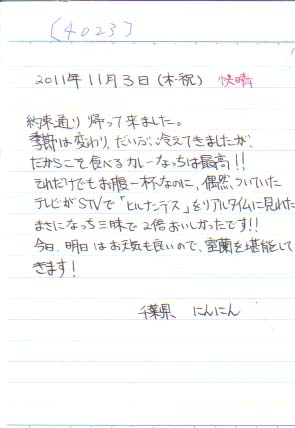 (4023)
2011年11月3日(木・祝) 快晴
約束通り 帰って来ました。
季節は変わり、だいぶ冷えてきましたが、
だからこそ食べるカレーなっちは最高!!
それだけでもお腹一杯なのに、偶然、ついていた
テレビがSTVで「ヒルナンデス」をリアルタイムに見れた
まさになっち三昧で2倍おいしかったです!!
今日、明日はお天気も良いので、室蘭を堪能して
きます!
千葉県 にんにん